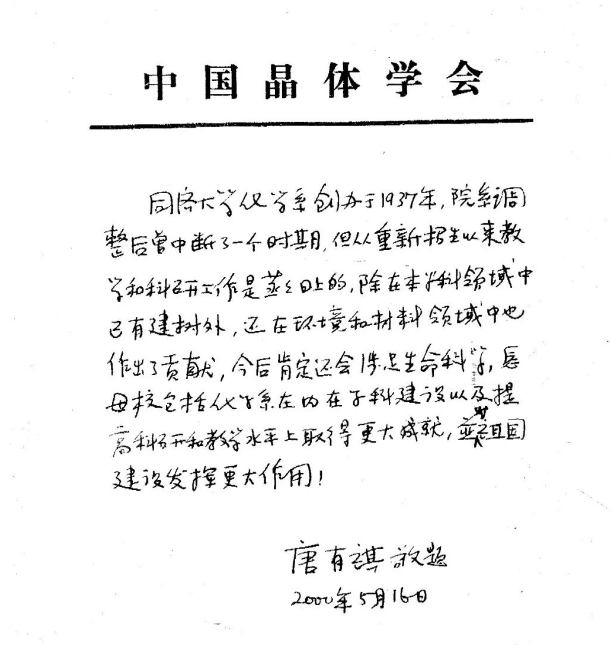 中国晶体学会
同济大学化学系创办于1937年，院系调
整后曾中断了一个时期，但从重新招生以来教
学和科研工作是蒸々日上的，除在本学科领域中
已有建树外，还在环境和材料领域中也
作出了贡献，今后肯定还会涉足生命科学，愿
母校包括化学系在内在学科建设以及提
高科研和教学水平上取得更大成就，祖国
建设发挥更大作用！
唐有祺敬题
2000年5月16日